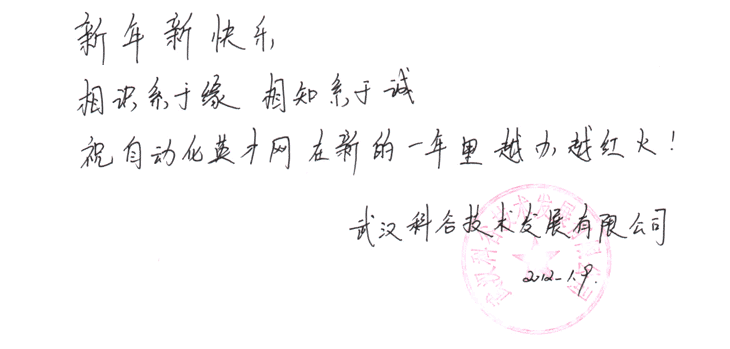 新年新快乐
相识系于缘 相知系于诚
祝自动化英才网在新的一年里越办越红火!
武汉科合技术发展有限公司
2012-1.9.